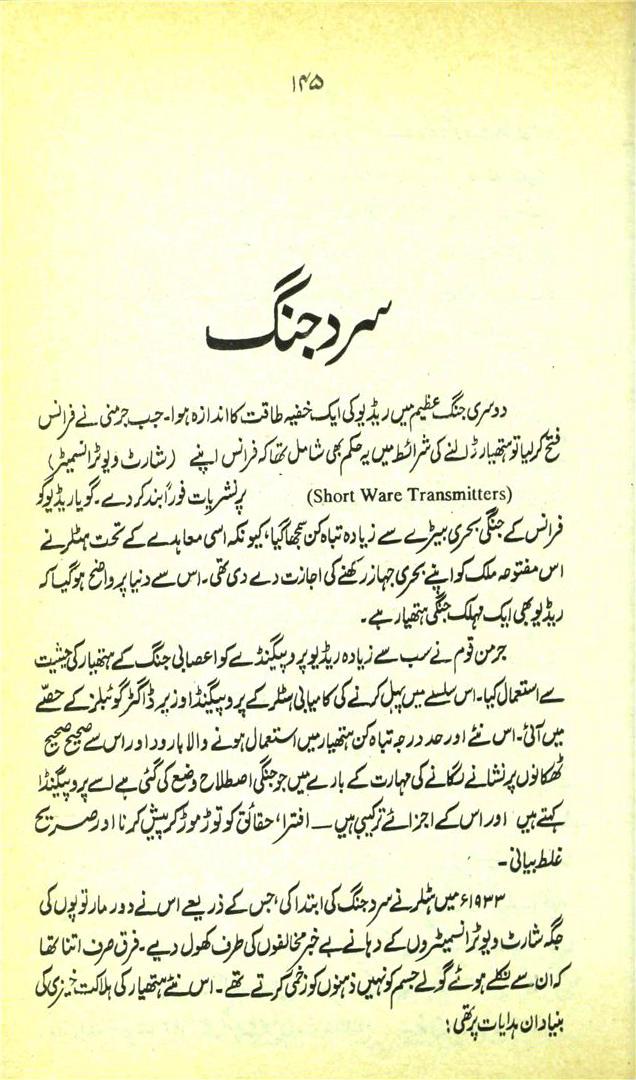 ۱۴۵
سرد جنگ
دوسری جنگ عظیم میں ریڈیو کی ایک خفیہ طاقت کا اندازہ ہوا۔ جب جرمنی نے فرانس
فتح کر لیا تو ہتھیار ڈالنے کی شرائط میں یہ حکم بھی شامل تھا کہ فرانس اپنے (شارٹ ویو ٹرانسمیٹر)
(Short Ware Transmitters) پر نشریات فوراً بند کر دے۔ گویا ریڈیو کو
فرانس کے جنگی بحری بیڑے سے زیادہ تباہ کن سمجھا گیا، کیونکہ اسی معاہدے کے تحت ہٹلر نے
اس مفتوحہ ملک کو اپنے بحری جہاز رکھنے کی اجازت دے دی تھی۔ اس سے دنیا پر واضح ہو گیا کہ
ریڈیو بھی ایک مہلک جنگی ہتھیار ہے۔
جرمن قوم نے سب سے زیادہ ریڈیو پروپیگنڈے کو اعصابی جنگ کے ہتھیار کی حیثیت
سے استعمال کیا۔ اس سلسلے میں پہل کرنے کی کامیابی ہٹلر کے پروپیگنڈا وزیر ڈاکٹر گوئبلز کے حصّے
میں آئی۔ اس نئے اور حد درجہ تباہ کن ہتھیار میں استعمال ہونے والا بارود اور اس سے صحیح صحیح
ٹھکانوں پر نشانے لگانے کی مہارت کے بارے میں جو جنگی اصطلاح وضع کی گئی ہے اسے پروپیگنڈا
کہتے ہیں اور اس کے اجزائے ترکیبی ہیں — افترا، حقائق کو توڑ موڑ کر پیش کرنا اور صریح
غلط بیانی۔
۱۹۳۳ء میں ہٹلر نے سرد جنگ کی ابتدا کی، جس کے ذریعے اس نے دور مار توپوں کی
جگہ شارٹ ویو ٹرانسمیٹروں کے دہانے بے خبر مخالفوں کی طرف کھول دیے۔ فرق صرف اتنا تھا
کہ ان سے نکلے ہوئے گولے جسم کو نہیں ذہنوں کو زخمی کرتے تھے۔ اس نئے ہتھیار کی ہلاکت خیزی کی
بنیاد ان ہدایات پر تھی: